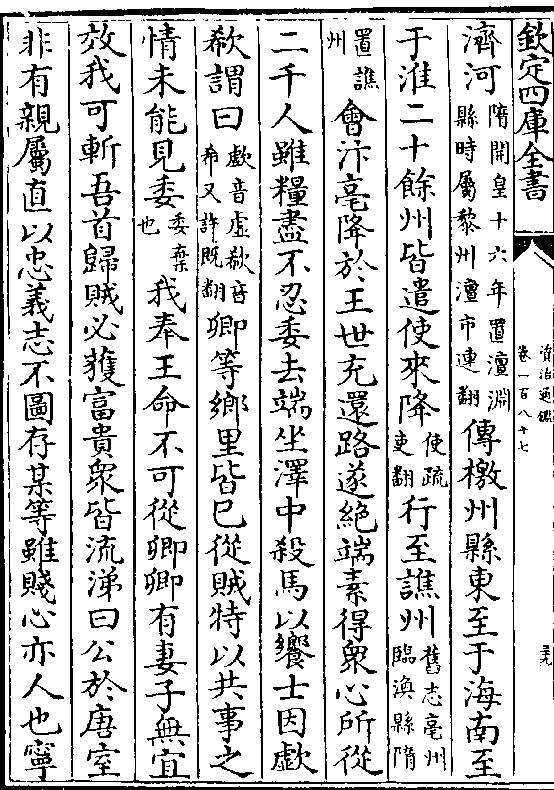 欽定四庫全書
資治通鑑
卷一百八十七
濟河隋開皇十六年置澶淵縣時屬黎州澶市連翻傳檄州縣東至于海南至
于淮二十餘州皆遣使來降使疏吏翻行至譙州舊志亳州臨渙縣隋
置譙州會汴亳降於王世充還路遂絶端素得衆心所從
二千人雖糧盡不忍委去端坐澤中殺馬以饗士因歔
欷謂曰歔音虚欷音希又許既翻卿等鄉里皆已從賊特以共事之
情未能見委委棄也我奉王命不可從卿卿有妻子無宜
效我可斬吾首歸賊必獲富貴衆皆流涕曰公於唐室
非有親屬直以忠義志不圖存某等雖賤心亦人也寧